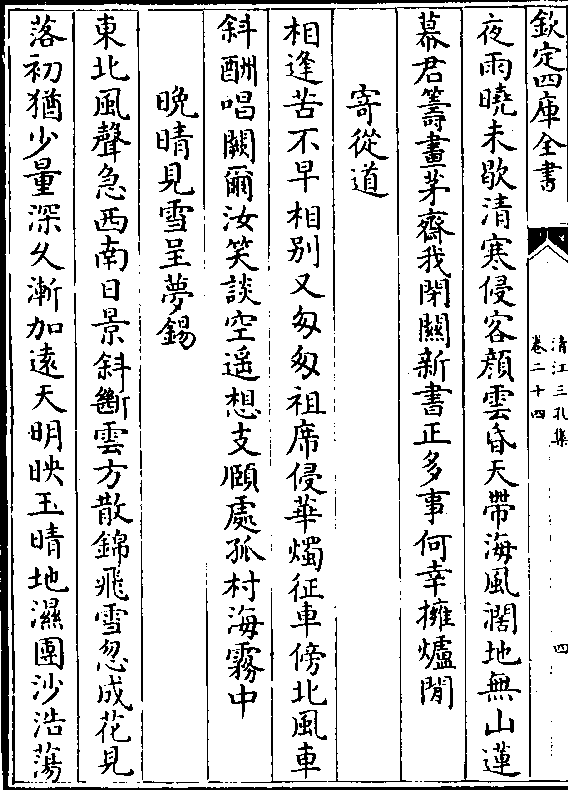 欽定四庫全書
清江三孔集
卷二十四
四
夜雨曉未歇清寒侵客顔雲昏天帶海風濶地無山蓮
幕君籌畫茅齋我閉關新書正多事何幸擁爐閒
寄從道
相逢苦不早相別又匆匆祖席侵華燭征車傍北風車
斜酬唱闕爾汝笑談空遥想支頤處孤村海霧中
晩晴見雪呈夢錫
東北風聲急西南日景斜斷雲方散錦飛雪忽成花見
落初猶少量深久漸加遠天明映玉晴地濕團沙浩蕩